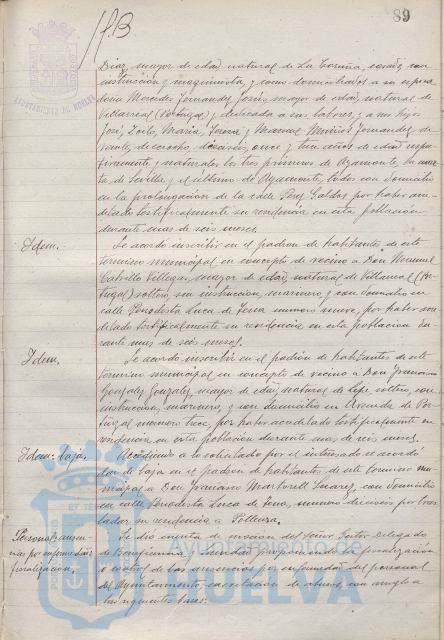 89
AYUNTAMIENTO DE HUELVA
Diaz, mayor de edad, natural de La Coruña, casado, con
instrucción y maquinista, y como domiciliados a su esposa
doña Mercedes Fernandez José, mayor de edad, natural de
Villarreal (Portugal) y dedicada a sus labores, y a sus hijos
José, Zoilo, Maria, Juana y Manuel Muñiz Fernandez, de
veinte, dieciocho, dieciseis, once y tres años de edad respec-
tivamente, y naturales los tres primeros de Ayamonte, la cuar-
ta de Sevilla y el último de Ayamonte, todos con domicilio
en la prolongación de la calle Perez Galdos por haber acre-
ditado testificalmente su residencia en esta población
durante mas de seis meses.
Idem. Se acordó inscribir en el padrón de habitantes de este
término municipal en concepto de vecino a Don Manuel
Villegas, mayor de edad, natural de (Por-
tugal) soltero, sin instrucción, marinero, y con domicilio en
calle Periodista Luca de Tena numero nueve, por haber acre-
ditado testificalmente su residencia en esta población du-
rante mas de seis meses.
Idem. Se acordó inscribir en el padrón de habitantes de este
término municipal en concepto de vecino a Don Francisco
Gonzalez Gonzalez, mayor de edad, natural de Lepe, soltero, con
instrucción, marinero, y con domicilio en Avenida de Por-
tugal numero trece, por haber acreditado testificalmente su
residencia en esta población durante mas de seis meses.
Idem: baja. Accediendo a lo solicitado por el interesado se acordó
dar de baja en el padrón de habitantes de este término mu-
nicipal a Don Francisco Martorell Suarez, con domicilio
en calle Periodista Luca de Tena, numero dieciseis por tras-
ladar su residencia a Pollensa.
Personal: ausen- Se dio cuenta de moción del Señor Gestor delegado
cias por enfermedad: de Beneficencia y Sanidad proponiendo la fiscalización
fiscalización. con motivo de las ausencias por enfermedad del personal
del Ayuntamiento, en evitación de abusos, con arreglo a
las siguientes bases:
Ayuntamiento de
HUELVA